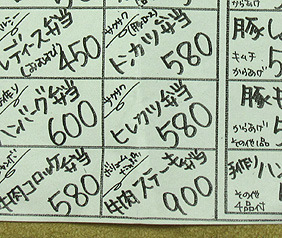 レディース弁当
(おかず)
450
サクサク
トンカツ弁当
580
手作り
ハンバーグ弁当
600
サクサク
ヒレカツ弁当
580
牛肉コロッケ弁当
580
ボリューム
牛肉ステーキ弁当
900
からあげ
豚し
キムチ
からあげ
5
豚も
からあげ
その他1品
5
手作りハン
その他
4品付